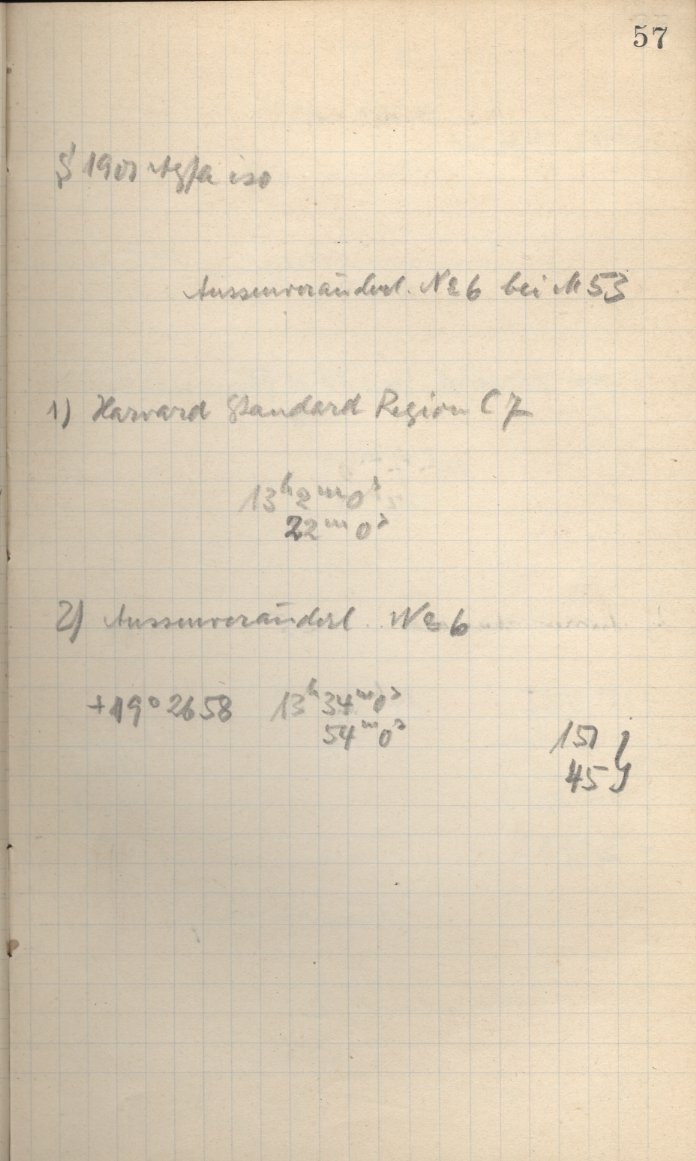 57
S 1907 Agfa iso
Aussenveränderl. № 6 bei M 53
1) Harvard Standard Region C 7
13ʰ 2ᵐ 0ˢ
22ᵐ 0ˢ
2) Aussenveränderl. № 6
+19° 2658 13ʰ 34ᵐ 0ˢ
54ᵐ 0ˢ
151 }
45